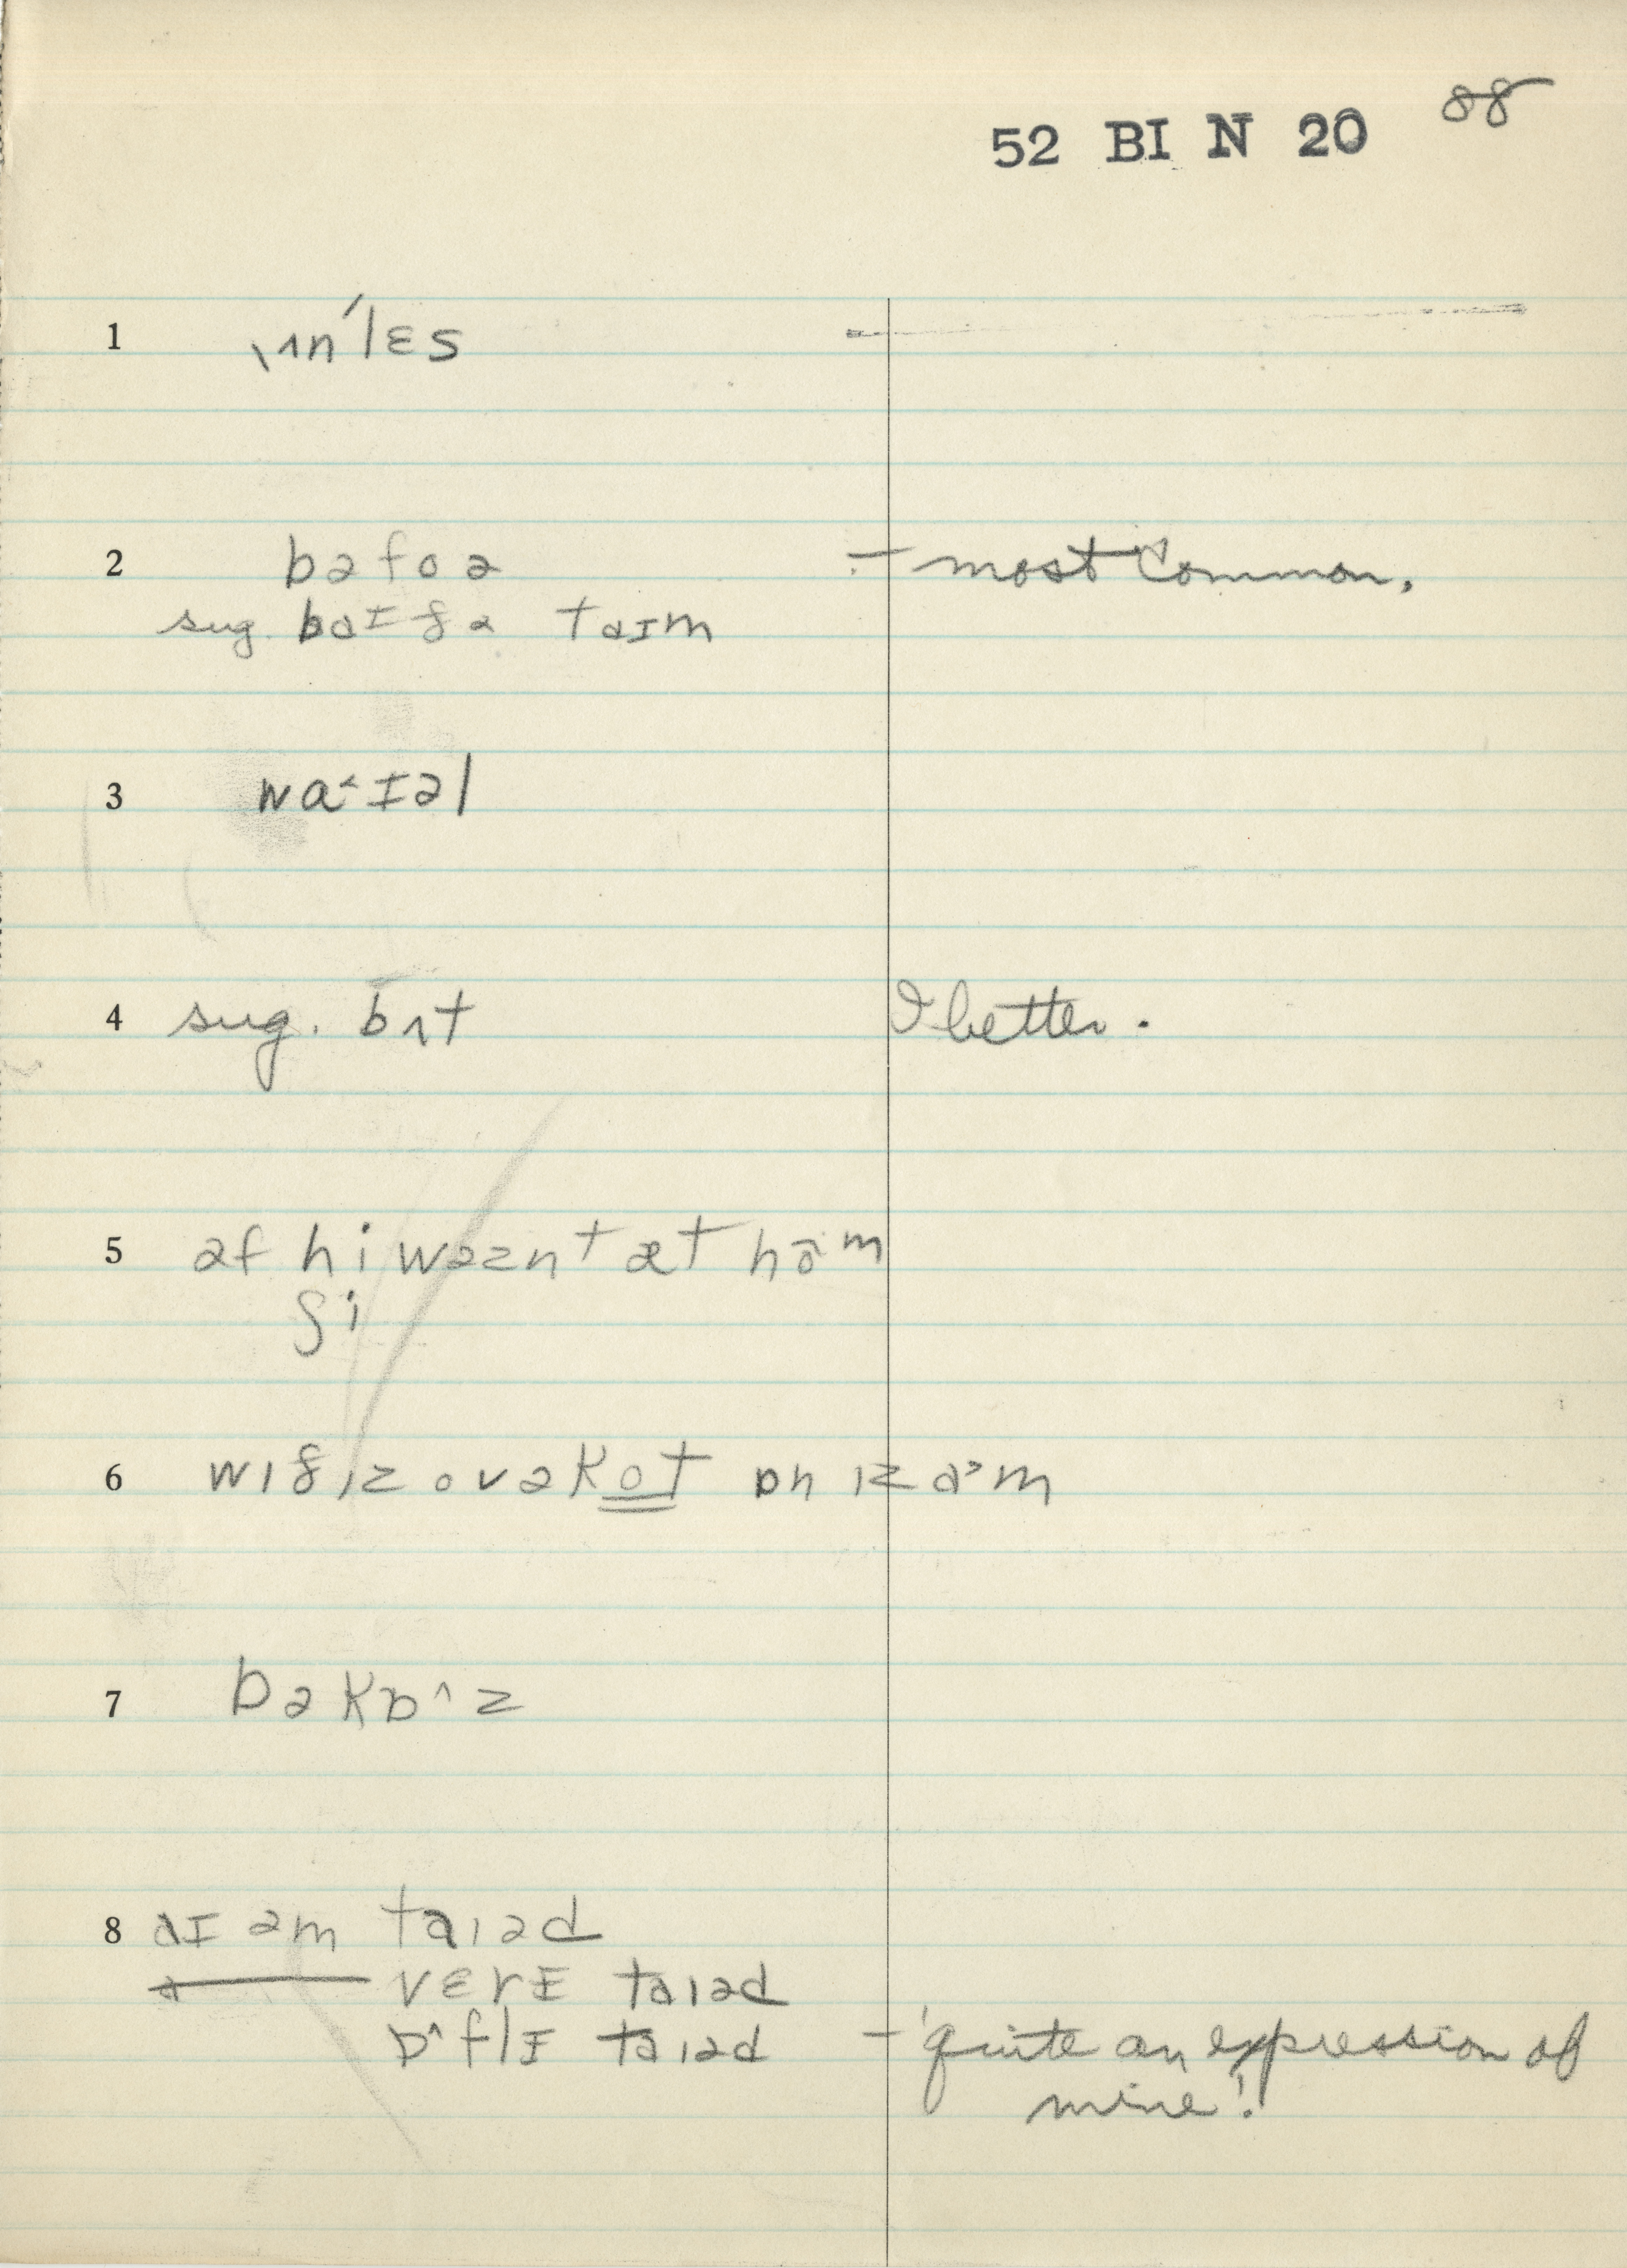 52 BI N 20 88
1 ˌʌnˈlɛs
2 bəfoə - most common.
sug. baɪ ðə taɪm
3 waˑɪəl
4 sug. bʌt I better.
5 əf hi wəznt æt hōm
ʃi
6 wɪð ɪz ovəkot ɒn ɪz aˀm
7 bəkɒ^z
8 aɪ əm taɪəd
vɛrɪ taɪəd
ɒ^flɪ taɪəd - 'quite an expression of
mine!'